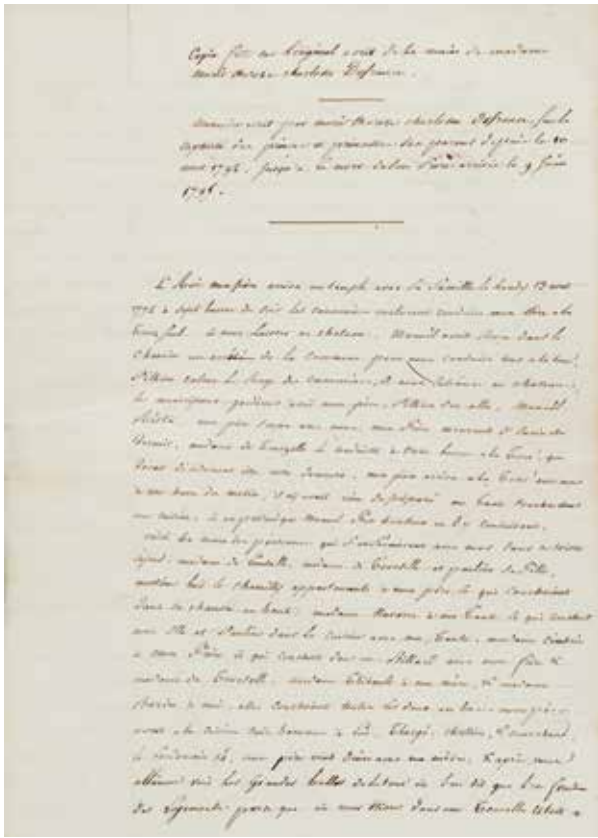 Copie faite sur l'original ecrit de la main de madame
marie therese charlotte De france.
Memoire ecrit par marie therese charlotte De france, sur la
captivité des princes et princesses ses parents depuis le 10
aout 1792. jusqu'à la mort de son frère arrivée le 9 juin
1795.
Le Roi mon père arriva au temple avec sa famille le lundi 13 aout
1792 à sept heures du soir les canoniers voulurent conduire mon père à la
tour seul. et nous laisser au chateau. Manuel avoit reçu dans le
chemin un arrêté de la commune pour nous conduire tous à la tour.
Pétion calma la rage des canoniers, et nous entrâmes au chateau.
les municipaux gardoient à vue mon père. Pétion s'en alla. Manuel
resta. mon père soupa avec nous. mon frère mouroit d'envie de
dormir. madame de Tourzelle le conduisit à onze heures à la tour, qui
devoit décidement être notre demeure. mon père arriva à la tour avec nous
à une heure du matin, il n'y avoit rien de préparé ma tante coucha dans
une cuisine, et
voici les noms des personnes qui s'enfermèrent avec nous dans ce triste
séjour. madame de Lamballe, madame de Tourzelle et pauline sa fille,
messieurs hue et chamilly appartenants à mon père et qui couchoient
dans sa chambre en haut; madame Navarre à ma tante et qui couchoit
avec elle et Pauline dans la cuisine avec ma tante. madame Cimbris
à mon frère et qui couchoit dans un billard avec mon frère et
madame de Tourzelle. madame Thibault à ma mère, et madame
à moi, elles couchoient toutes les deux en bas. mon père
avoit à la cuisine trois hommes à lui, Turgi, chretien, et marchand.
le lendemain 14, mon père vint diner avec ma mère, et après nous
allames voir les grandes salles de la tour où l'on dit que l'on feroit
des logements parce que où nous étions dans une tourelle etoit